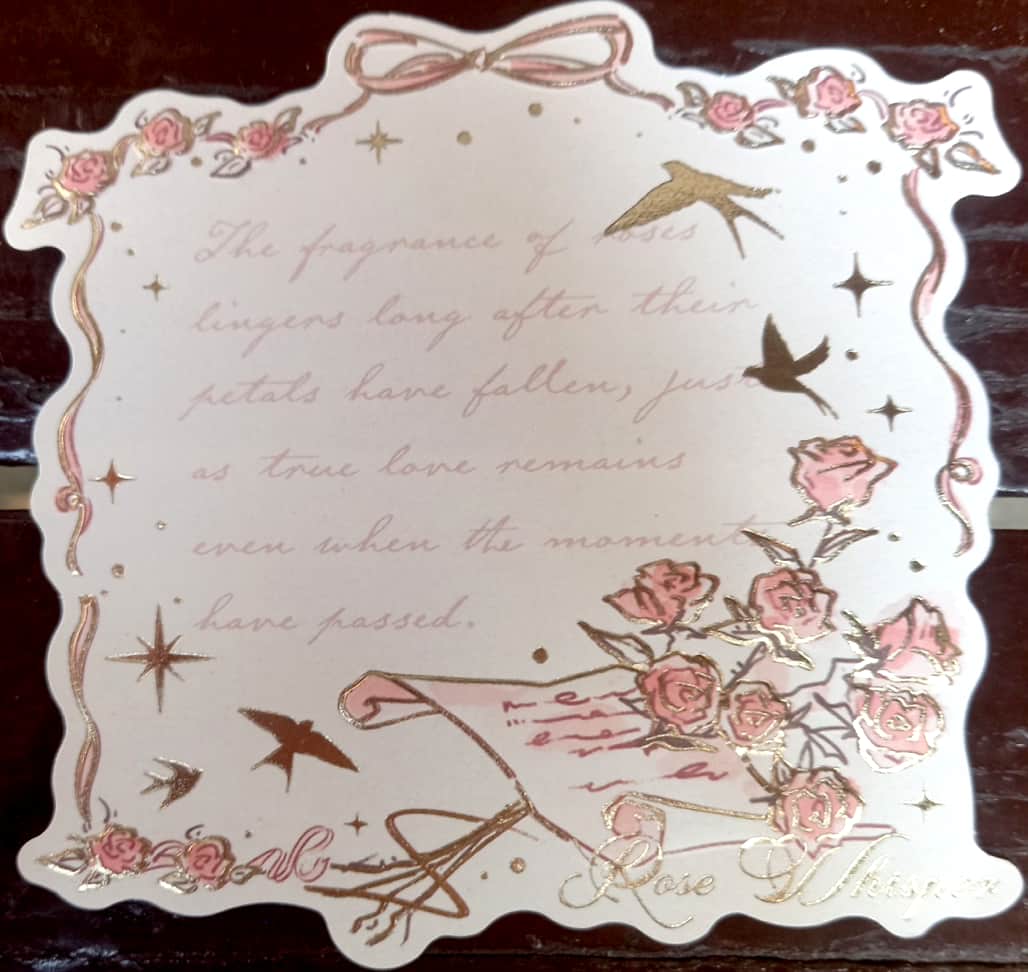 The fragrance of roses
lingers long after their
petals have fallen, just
as true love remains
even when the moments
have passed.
Rose Whisper